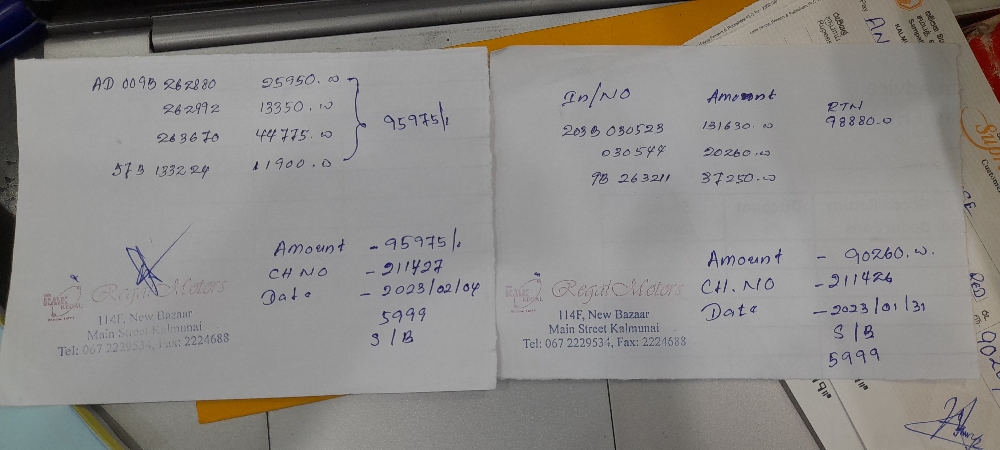 AD 009B 262880 25950.00
262992 13350.00
263670 44775.00
57B 133224 11900.00
95975/.
Amount - 95975/.
CH NO - 211427
Date - 2023/02/04
5999
S/B
Regal Motors
114F, New Bazaar
Main Street Kalmunai
Tel: 067 2229534, Fax: 2224688
In/NO Amount RTN
203B 030523 131630.00 98880.00
030544 20260.00
9B 263211 37250.00
Amount - 90260.00.
CH. NO - 211426
Date - 2023/01/31
S/B
5999
Regal Motors
114F, New Bazaar
Main Street Kalmunai
Tel: 067 2229534, Fax: 2224688